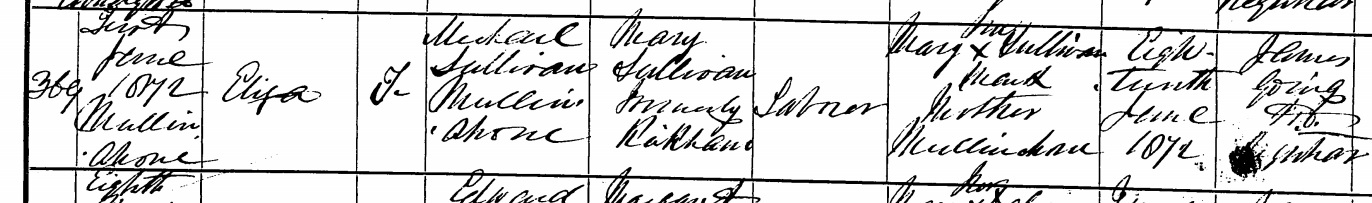 First
June
1872
Mullin
ahone
369
Eliza
F
Michael
Sullivan
Mullin
ahone
Mary
Sullivan
formerly
Labourer
her
Mary X Sullivan
Mark
Mother
Mullinahone
Eigh-
teenth
June
1872
James
Going
Registrar
Eighth
Edward
Margaret
her